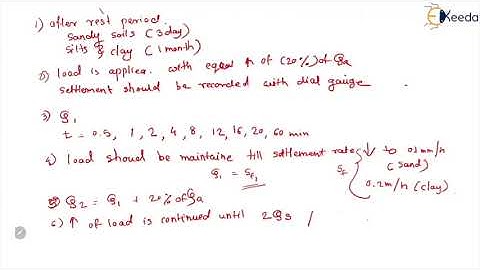 Ekeeda
1) after rest period.
Sandy soils (3 day)
Silts & clay (1 month)
2) load is applied with equal ↑ of (20%) of Qa
settlement should be recorded with dial gauge
3) Q1
t = 0.5, 1, 2, 4, 8, 12, 16, 20, 60 min
4) load should be maintaine till settlement rate ↓ to 0.1 mm/h
(sand)
Q1 = Sf1
Sf
0.2 m/h (clay)
5) Q2 = Q1 + 20% of Qa
6) ↑ of load is continued until 2Qs /